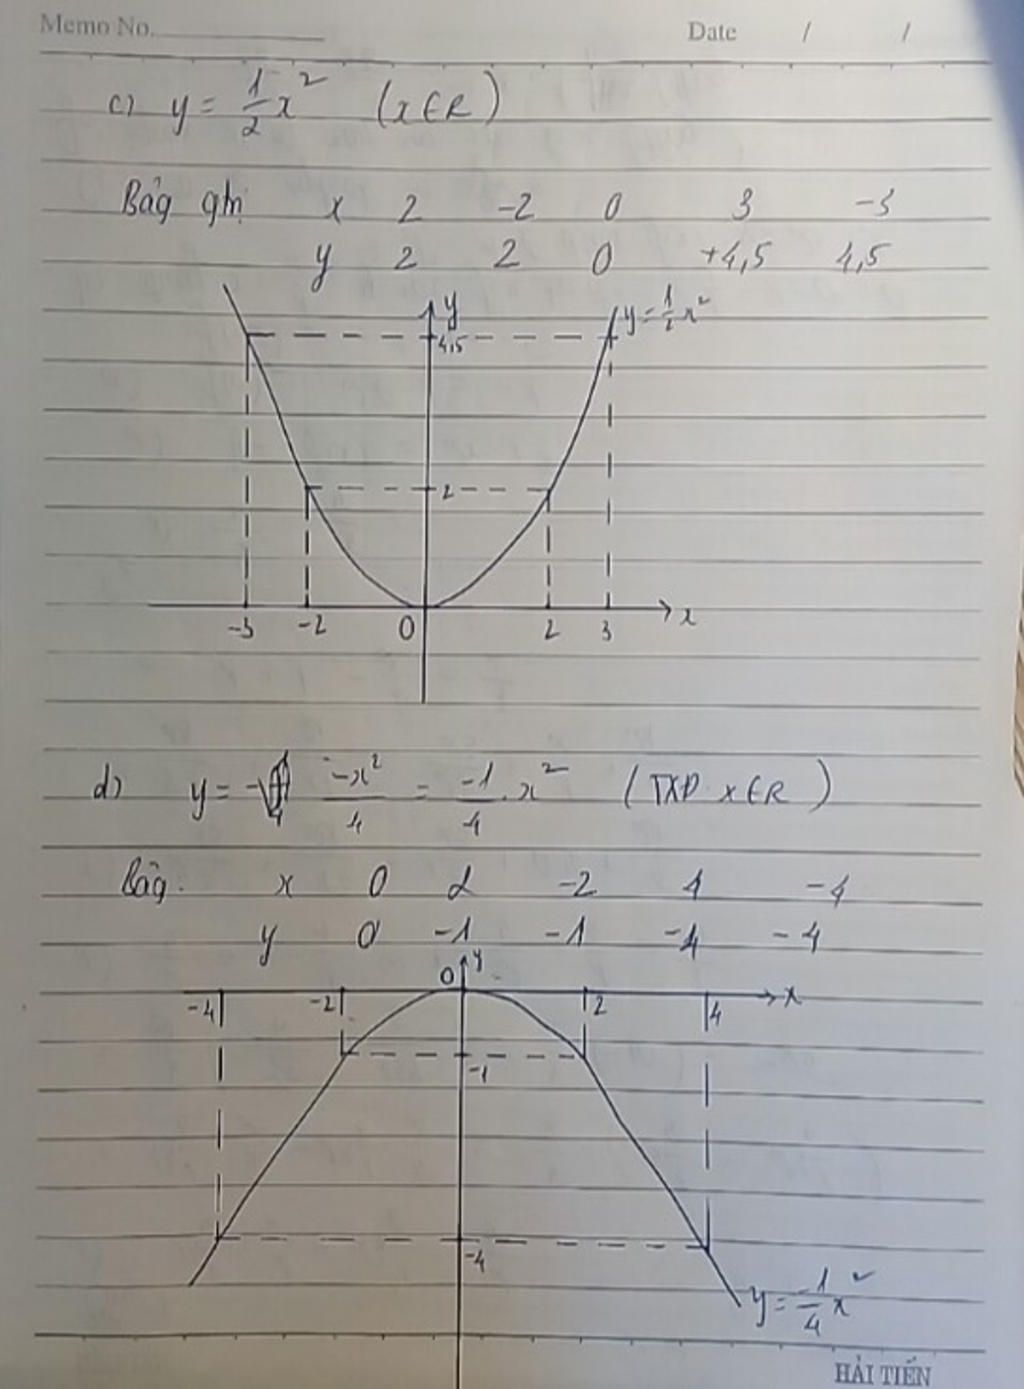 Memo No. Date / /
c) y = 1/2 x² (x ∈ R)
Bảg gtrị x 2 -2 0 3 -3
y 2 2 0 +4,5 4,5
y y = 1/2 x²
4,5
2
-3 -2 0 2 3 x
d) y = -x²/4 = -1/4 . x² (TXĐ x ∈ R)
Bảg. x 0 2 -2 4 -4
y 0 -1 -1 -4 -4
0 y
-4 -2 2 4 x
-1
-4
y = -1/4 x²
HẢI TIẾN